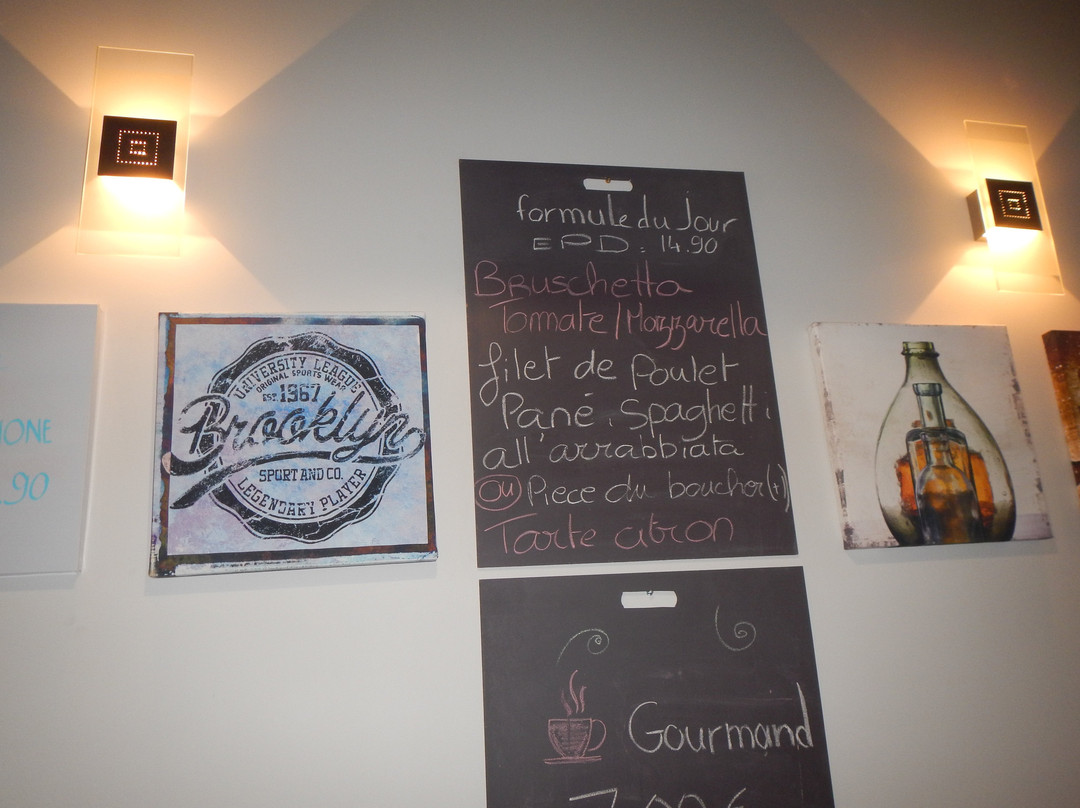 IONE
.90
UNIVERSITY LEAGUE
ORIGINAL SPORTS WEAR
EST. 1967
Brooklyn
SPORT AND CO.
LEGENDARY PLAYER
formule du Jour
EPD : 14.90
Bruschetta
Tomate/Mozzarella
filet de Poulet
Pané. Spaghetti
all'arrabbiata
ou Piece du boucher(+)
Tarte citron
Gourmand
7,00€